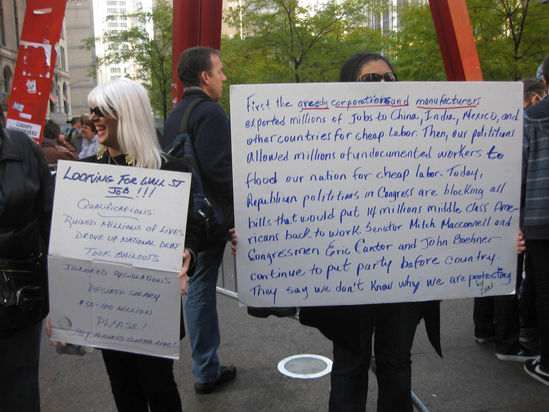 LOOKING FOR WALL ST
JOB!!!
QUALIFICATIONS:
RUINED MILLIONS OF LIVES
DROVE UP NATIONAL DEBT
TOOK BAILOUTS
IGNORED REGULATIONS
DESIRED SALARY
$50-100 MILLION
PLEASE!
HEY, A GIRL'S GOTTA LIVE!
First the greedy corporations and manufacturers
exported millions of Jobs to China, India, Mexico, and
other countries for cheap labor. Then, our polititions
allowed millions of undocumented workers to
flood our nation for cheap labor. Today,
Republican polititions in Congress are blocking all
bills that would put 14 millions middle class Ame-
ricans back to work. Senator Mitch Macconnell and
Congressmen Eric Cantor and John Boehner
continue to put party before country.
They say we don't Know why we are protesting